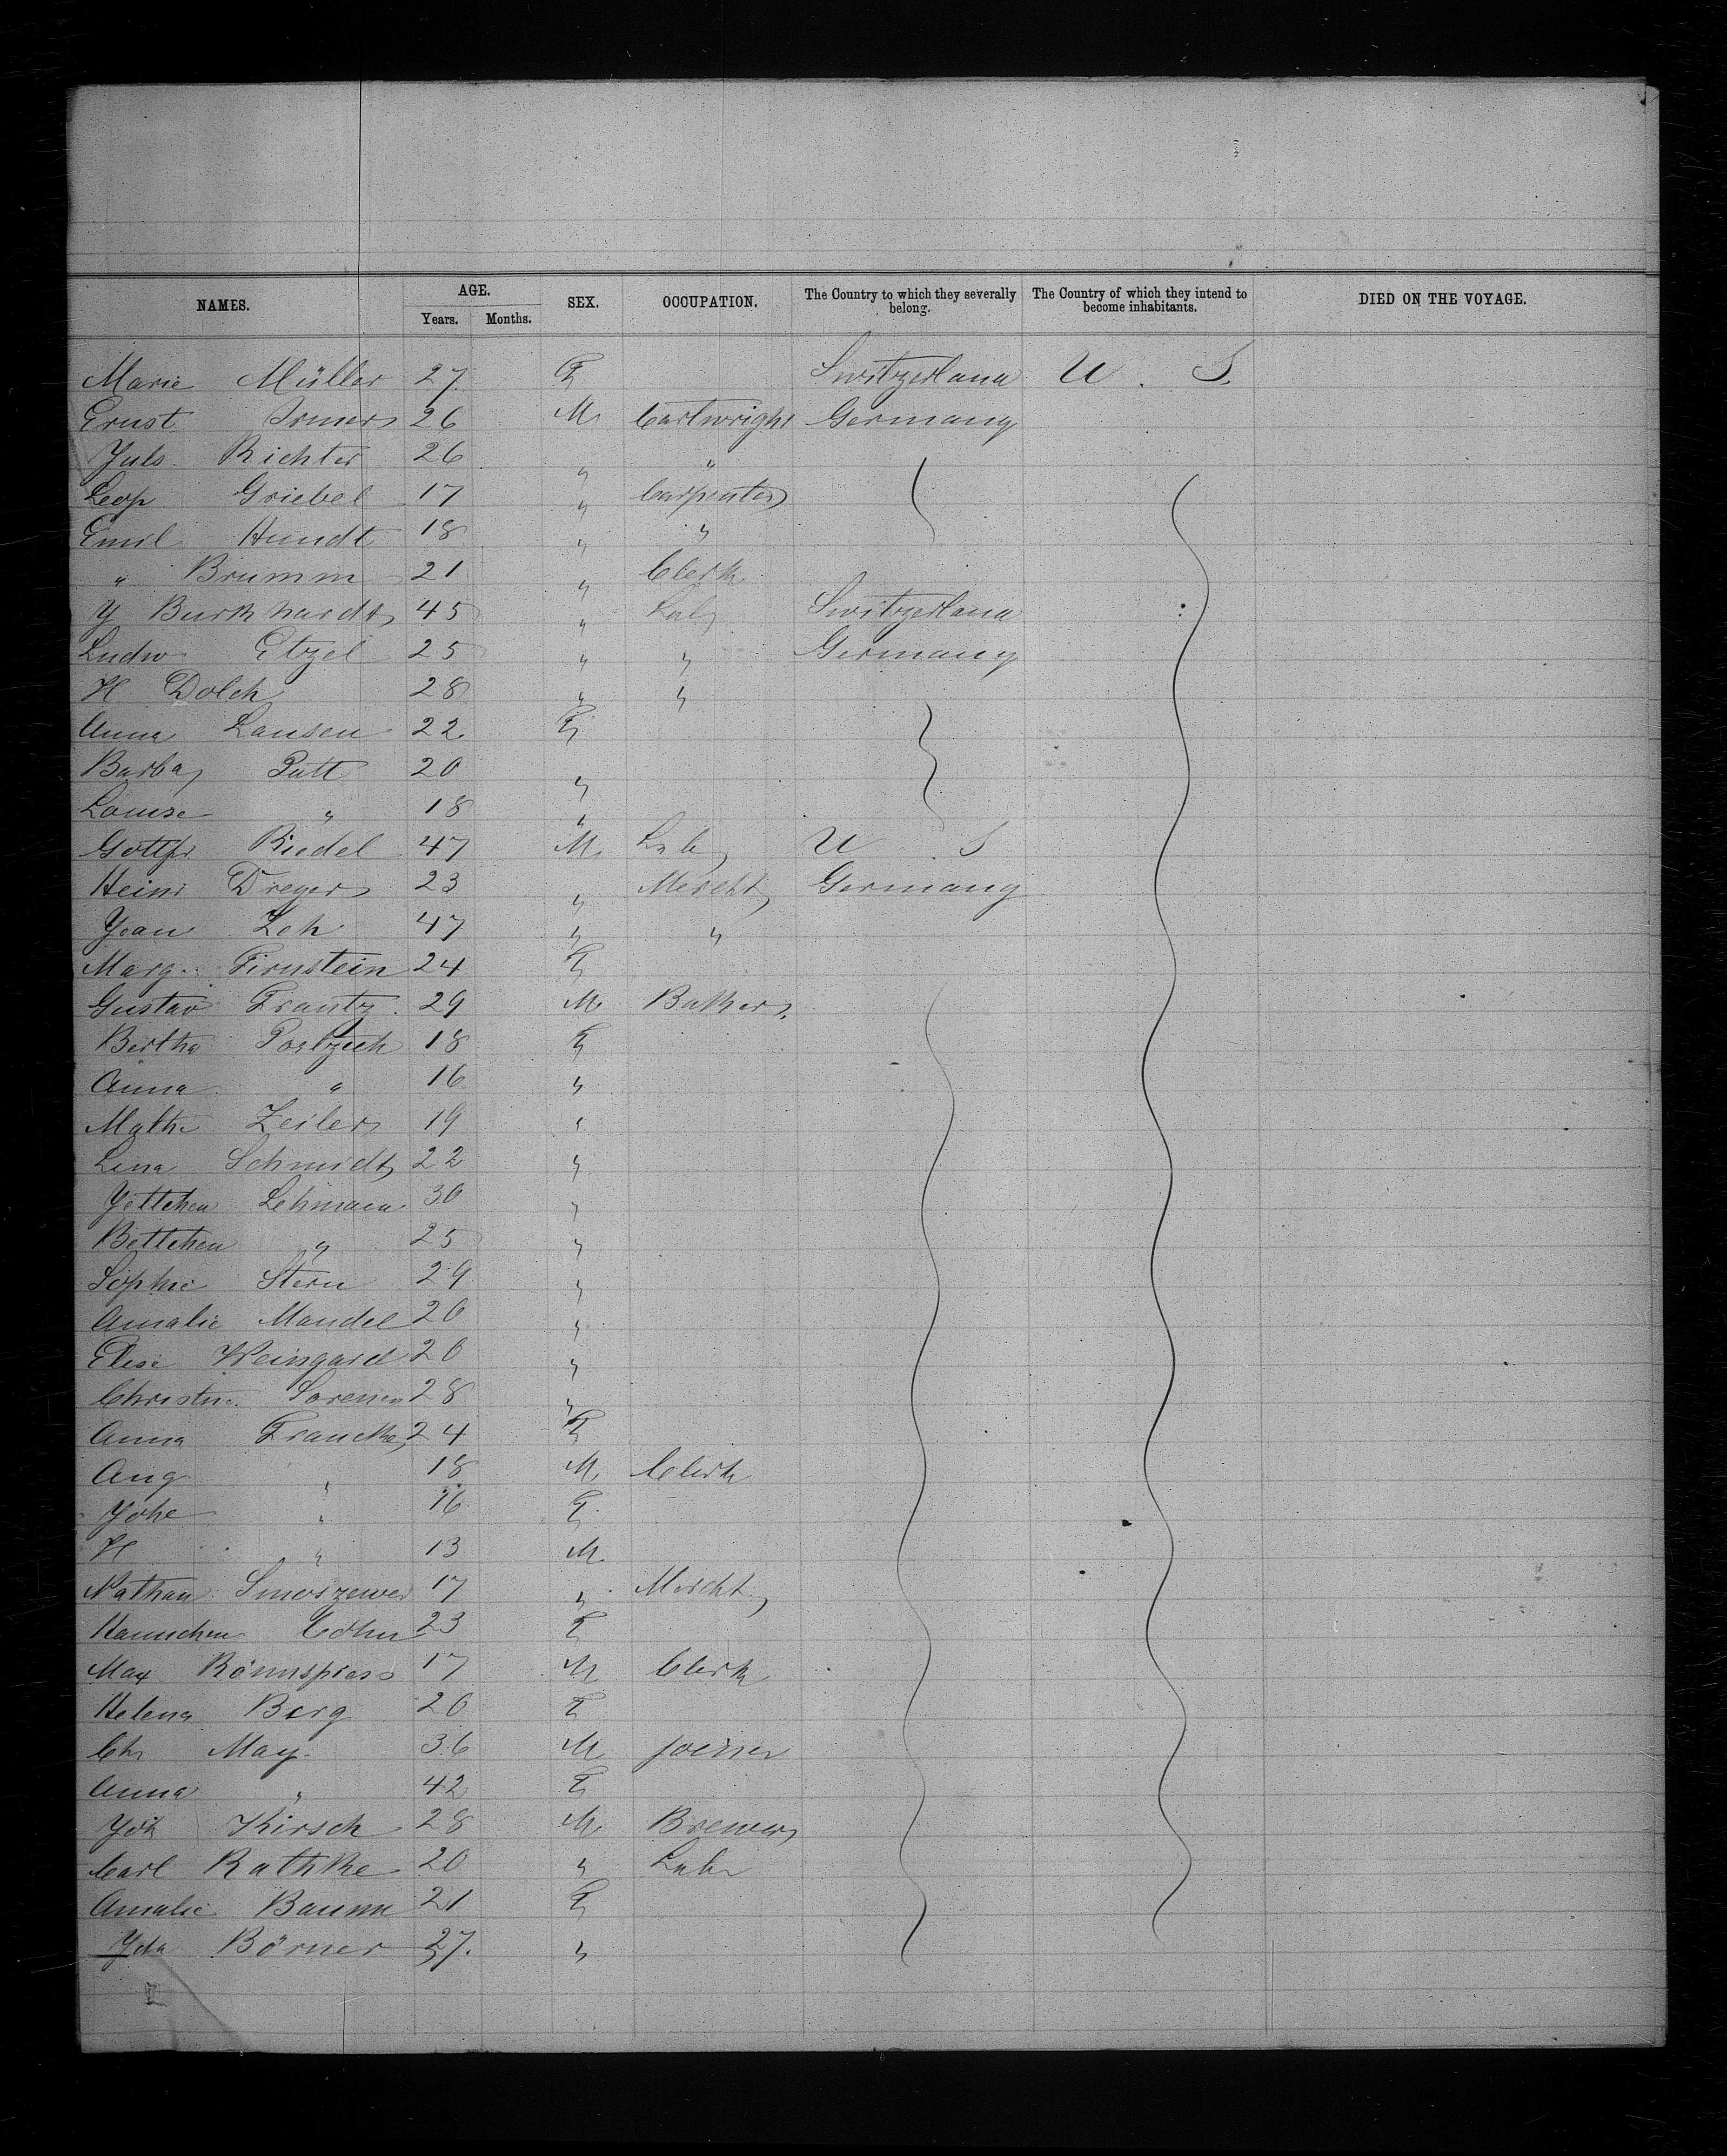 NAMES. AGE. SEX. OCCUPATION. The Country to which they severally belong. The Country of which they intend to become inhabitants. DIED ON THE VOYAGE.
Years. Months.
Marie Müller 27. F Switzerland U. S.
Ernst Irmer 26 M Cartwright Germany
Juls. Richter 26 " "
Leop Griebel 17 " Carpenter
Emil Hundt 18 " "
" Brumm 21 " Clerk
J Burkhardt 45 " Lab Switzerland
Ludw Etzel 25 " " Germany
H Dolch 28 " "
Anna Lansen 22. F
Barba Putt 20 "
Louise " 18 "
Gottfr Riedel 47 M Lab U S
Heinr Dreyer 23 " Mercht Germany
Jean Zeh 47 " "
Marg. Firnstein 24 F
Gustav Frantz. 29 M Baker
Bertha 18 F
Anna " 16 "
Math Zeiler 19 "
Lina Schmidt 22 "
Jettchen Lehmann 30 "
Bettchen " 25 "
Sophie Stern 29 "
Amalie Mandel 20 "
Elise Weingard 20 "
Christne. Sorensen 28 "
Anna Francke 24 F
Aug " 18 M Clerk
Johe " 16 F
H " 13 M
Nathan 17 " Mercht
Hannchen Cohn 23 F
Max 17 M Clerk
Helena Berg 20 F
Ch May. 36 M Joiner
Anna " 42 F
Joh Kirsch 28 M Brewer
Carl Rathke 20 " Labr
Amalie Baum 21 F
Ida Börner 27. "